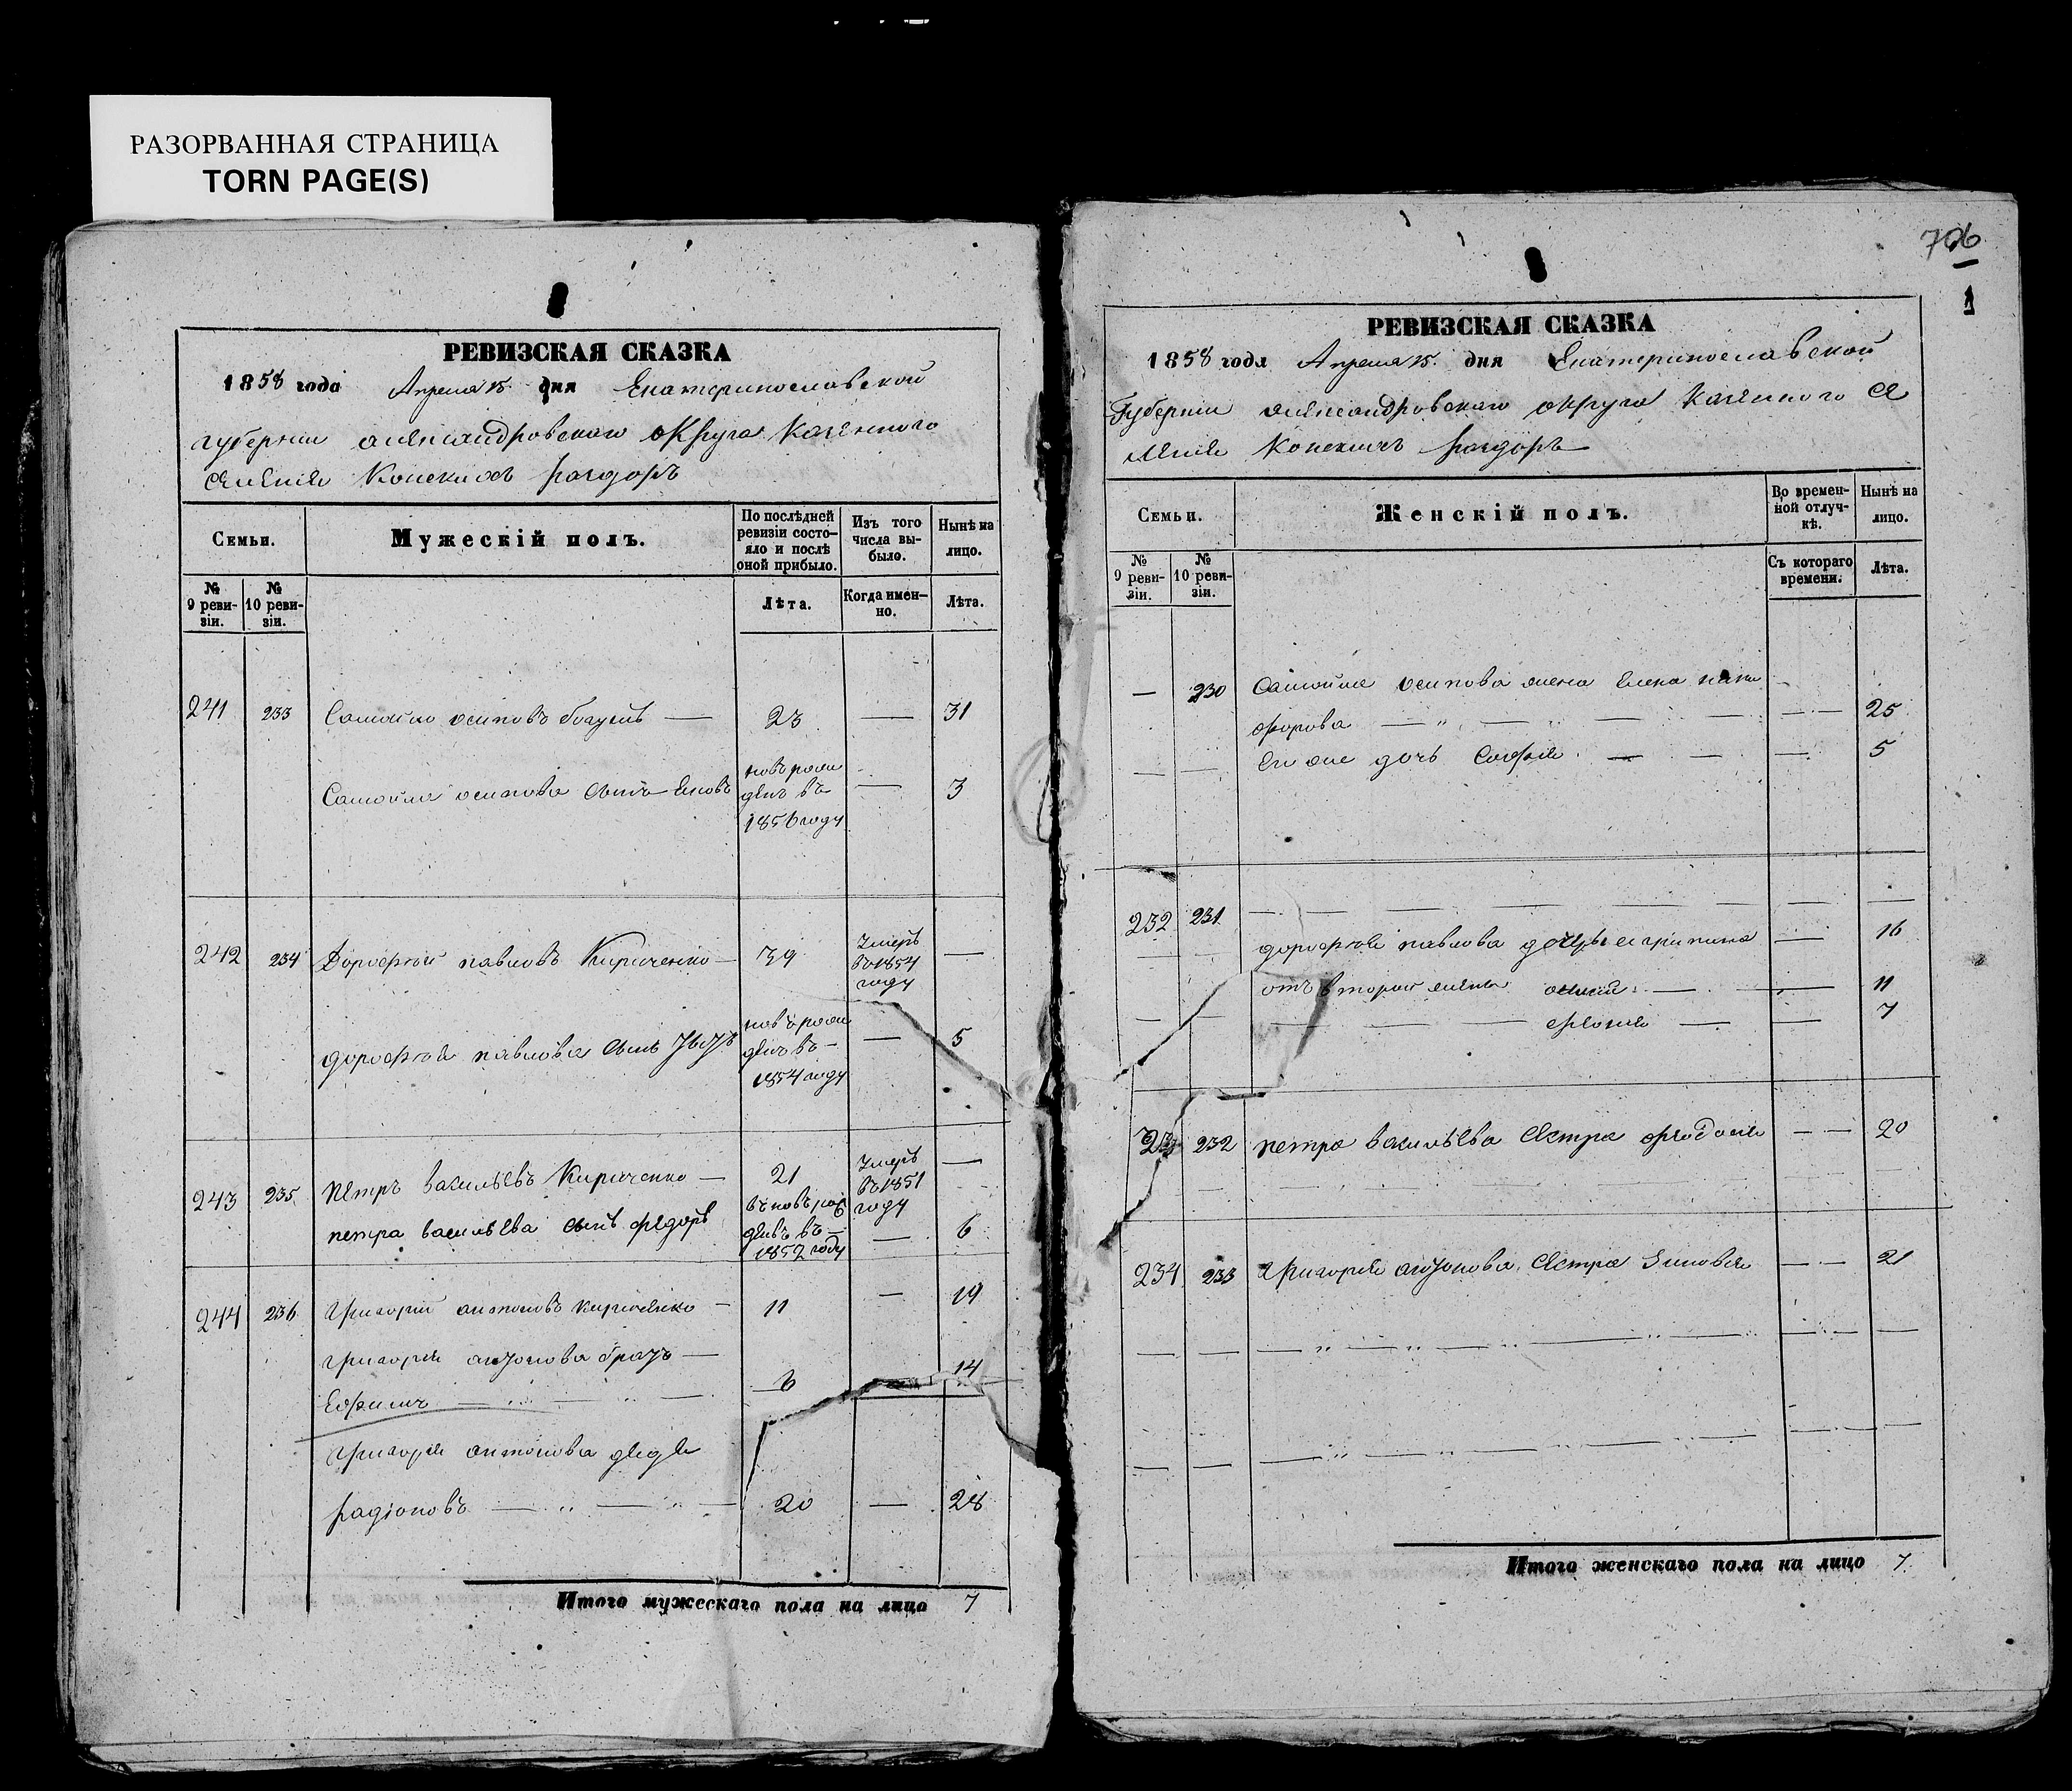 РАЗОРВАННАЯ СТРАНИЦА
TORN PAGE(S)
РЕВИЗСКАЯ СКАЗКА
1858 года Апреля 15. дня Екатеринославской
губернии александровскаго округа Казеннаго
селенія Конскихъ раздоръ
Семьи.
Мужескій полъ.
По послѣдней ревизіи состояло и послѣ оной прибыло.
Изъ того числа выбыло.
Нынѣ на лицо.
№ 9 ревизіи.
№ 10 ревизіи.
Лѣта.
Когда именно.
Лѣта.
241 233 Самойло осиповъ — 23 — 31
Самойла осипова сынъ новъ рож
денъ въ — 3
1856 году
242 234 Дорофѣй павловъ Кириченко — 39 Умеръ —
въ 1854
году
дорофѣя павлова сынъ новъ рож
денъ въ — — 5
1854 году
243 235 Петръ васильевъ Кириченко — 21 Умеръ —
въ 1851
году
петра васильева сынъ федоръ
денъ въ — — 6
1852 году
244 236 григорій антоновъ кириченко — 11 — 19
григорія антонова братъ —
Ефимъ — 6 14
григорія антонова дядя
радіоновъ — „ — „ — 20 — 28
Итого мужескаго пола на лицо 7
706
1
РЕВИЗСКАЯ СКАЗКА
1858 года Апреля 15. дня Екатеринославской
Губерніи александровскаго округа казеннаго се
ленія Конскихъ раздоръ
Семьи.
Женскій полъ.
Во временной отлучкѣ.
Нынѣ на лицо.
№ 9 ревизіи.
№ 10 ревизіи.
Съ котораго времени.
Лѣта.
— 230 Самойла осипова жена Елена ники
форова — „ — „ — — — — 25
Ея же дочь Софія — — — 5
232 231 — — — — — — — —
дорофѣя павлова дочь агрипина — 16
отъ второй жены — — 11
— — — — — — 7
232 петра васильева сестра феодосія — — 20
234 233 григорія антонова сестра Зиновія — — 21
— — — „ — „ — „ — „ — — — —
— — — „ — „ — „ — — — — —
Итого женскаго пола на лицо 7.